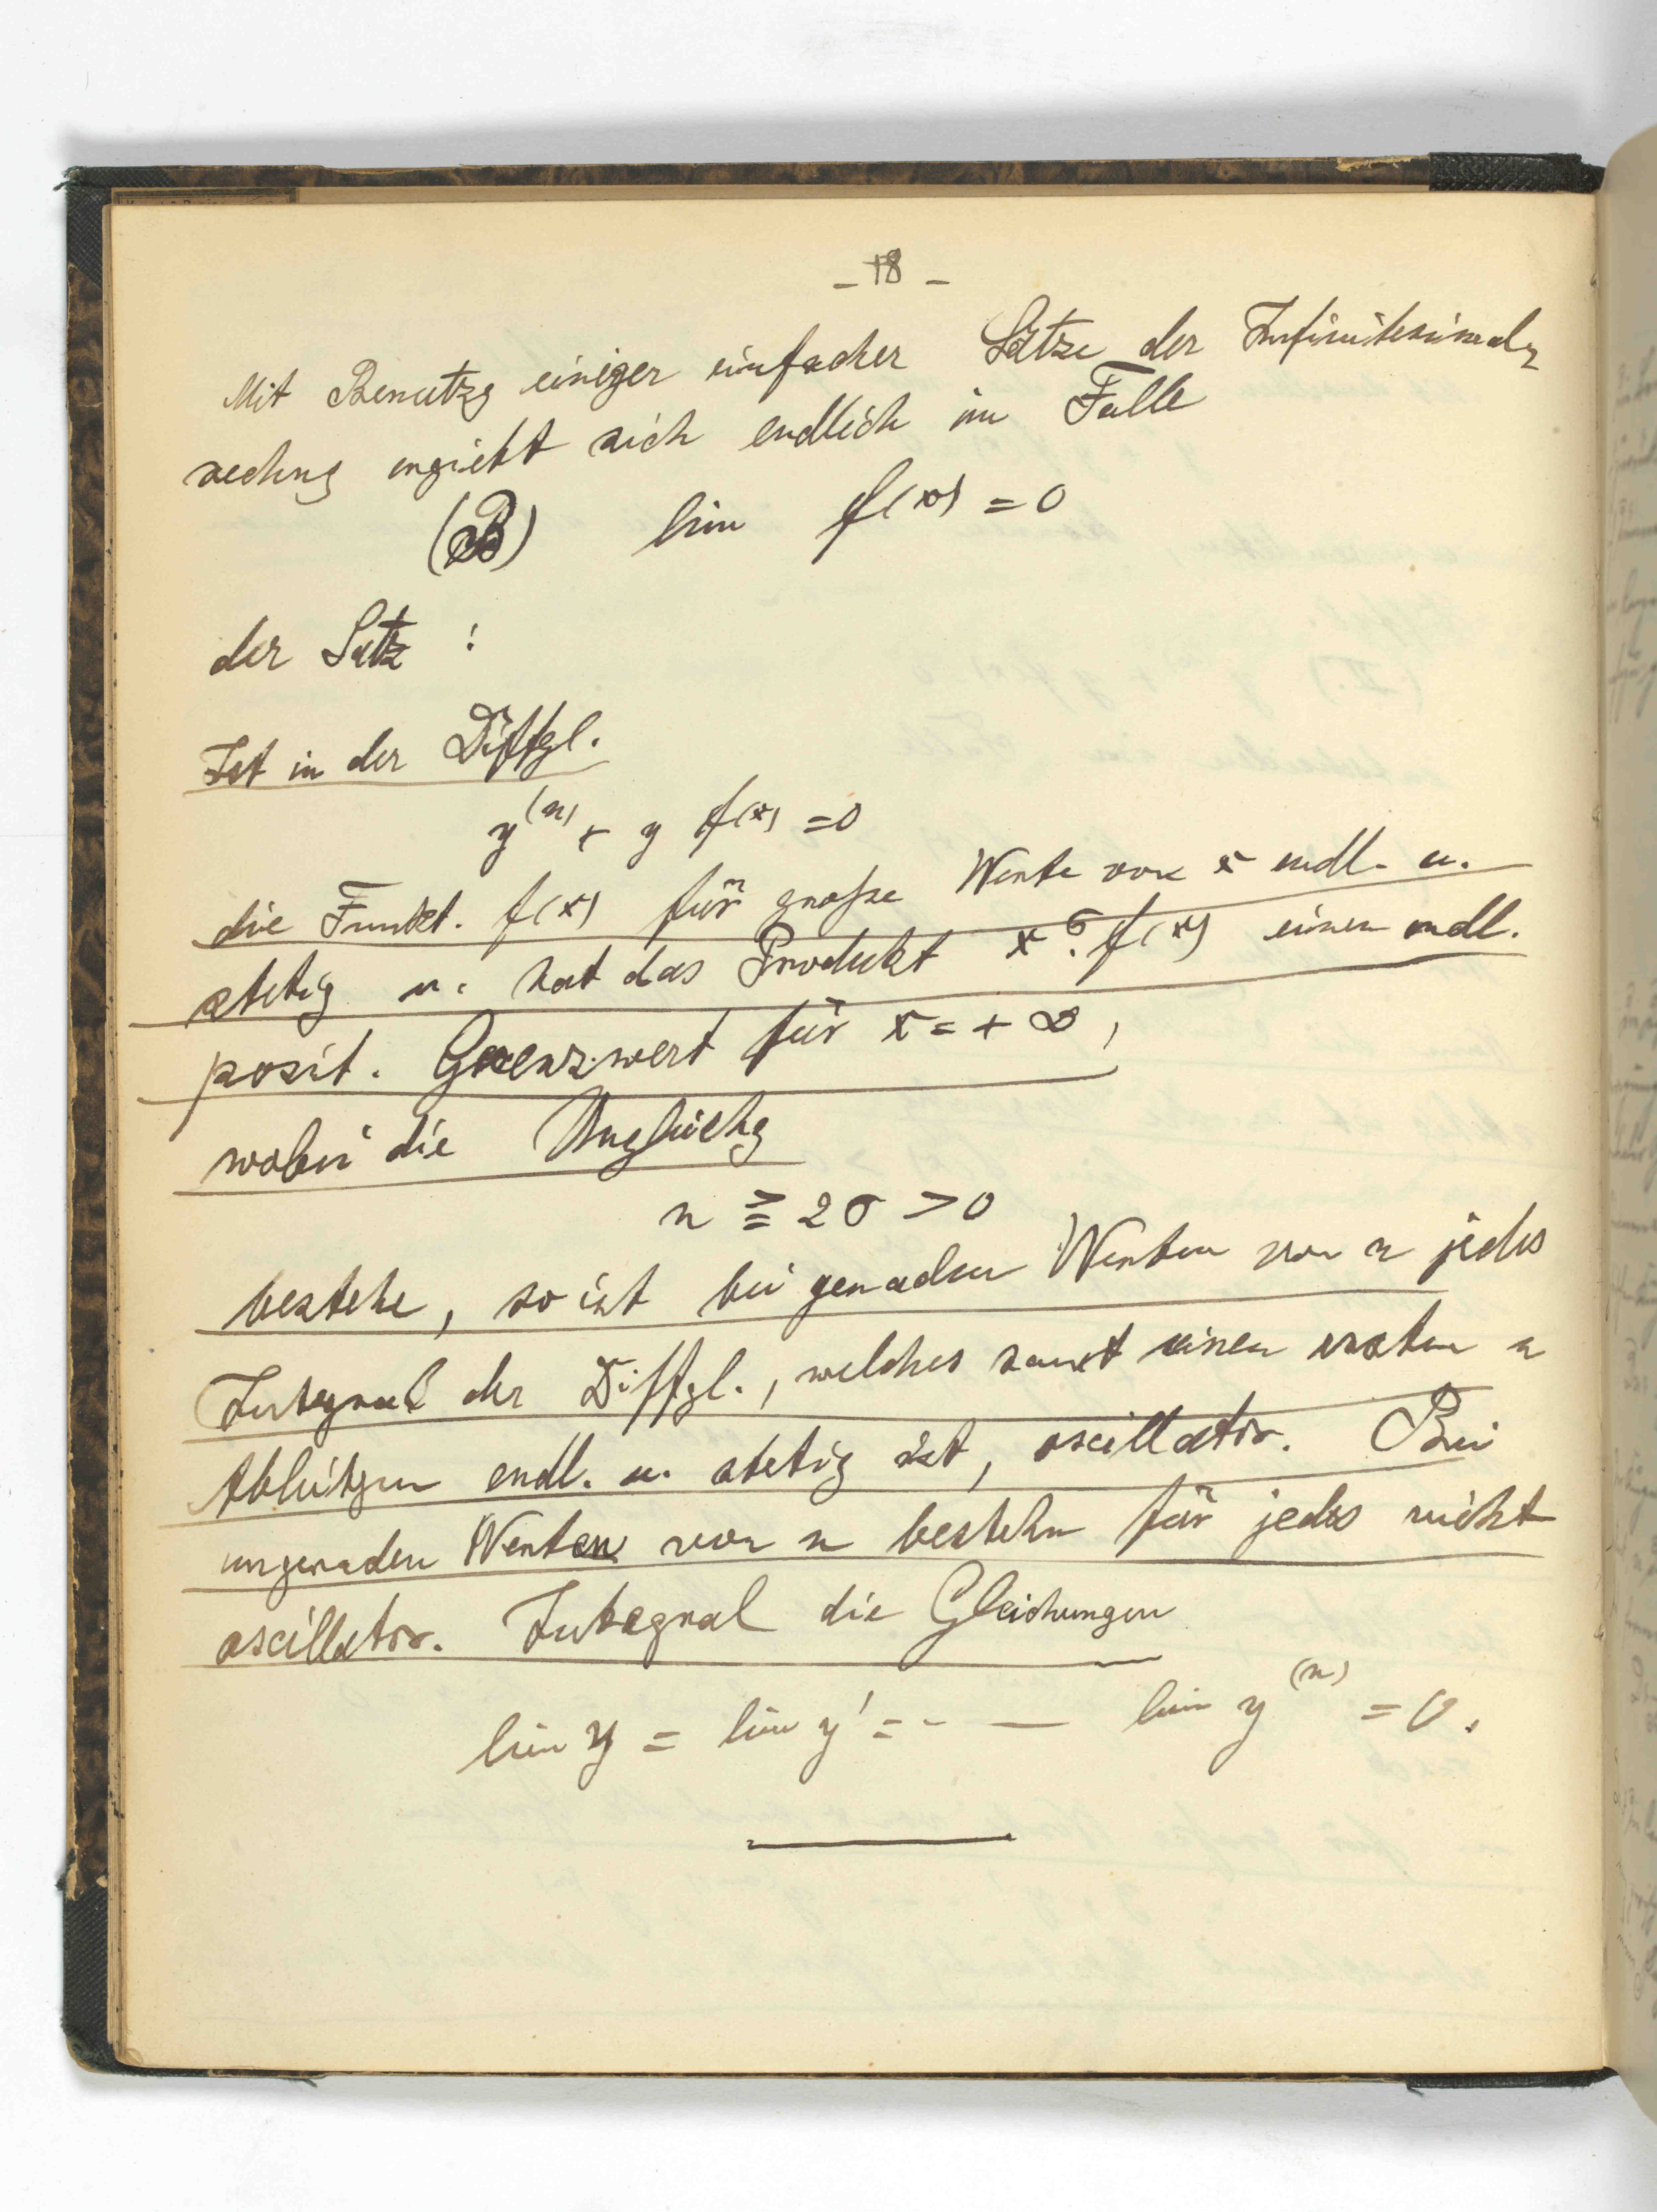 – 18 –
Mit Benutzg einiger einfacher Sätze der Infinitesimal-
rechng ergiebt sich endlich im Falle
(B) lim f(x) = 0
der Satz :
Ist in der Diffgl.
y⁽ⁿ⁾ + y f(x) = 0
die Funkt. f(x) für große Werte von x endl. u.
stetig u. hat das Produkt x^σ. f(x) einen endl.
posit. Grenzwert für x = + ∞ ,
wobei die Ungleichg
n ≧ 2σ > 0
bestehe, so ist bei geraden Werten von n jedes
Integral der Diffgl., welches samt seinen ersten n
Ableitgen endl. u. stetig ist, oscillator. Bei
ungeraden Werten von n bestehn für jedes nicht
oscillator. Integral die Gleichungen
lim y = lim y' = - — lim y⁽ⁿ⁾ = 0.